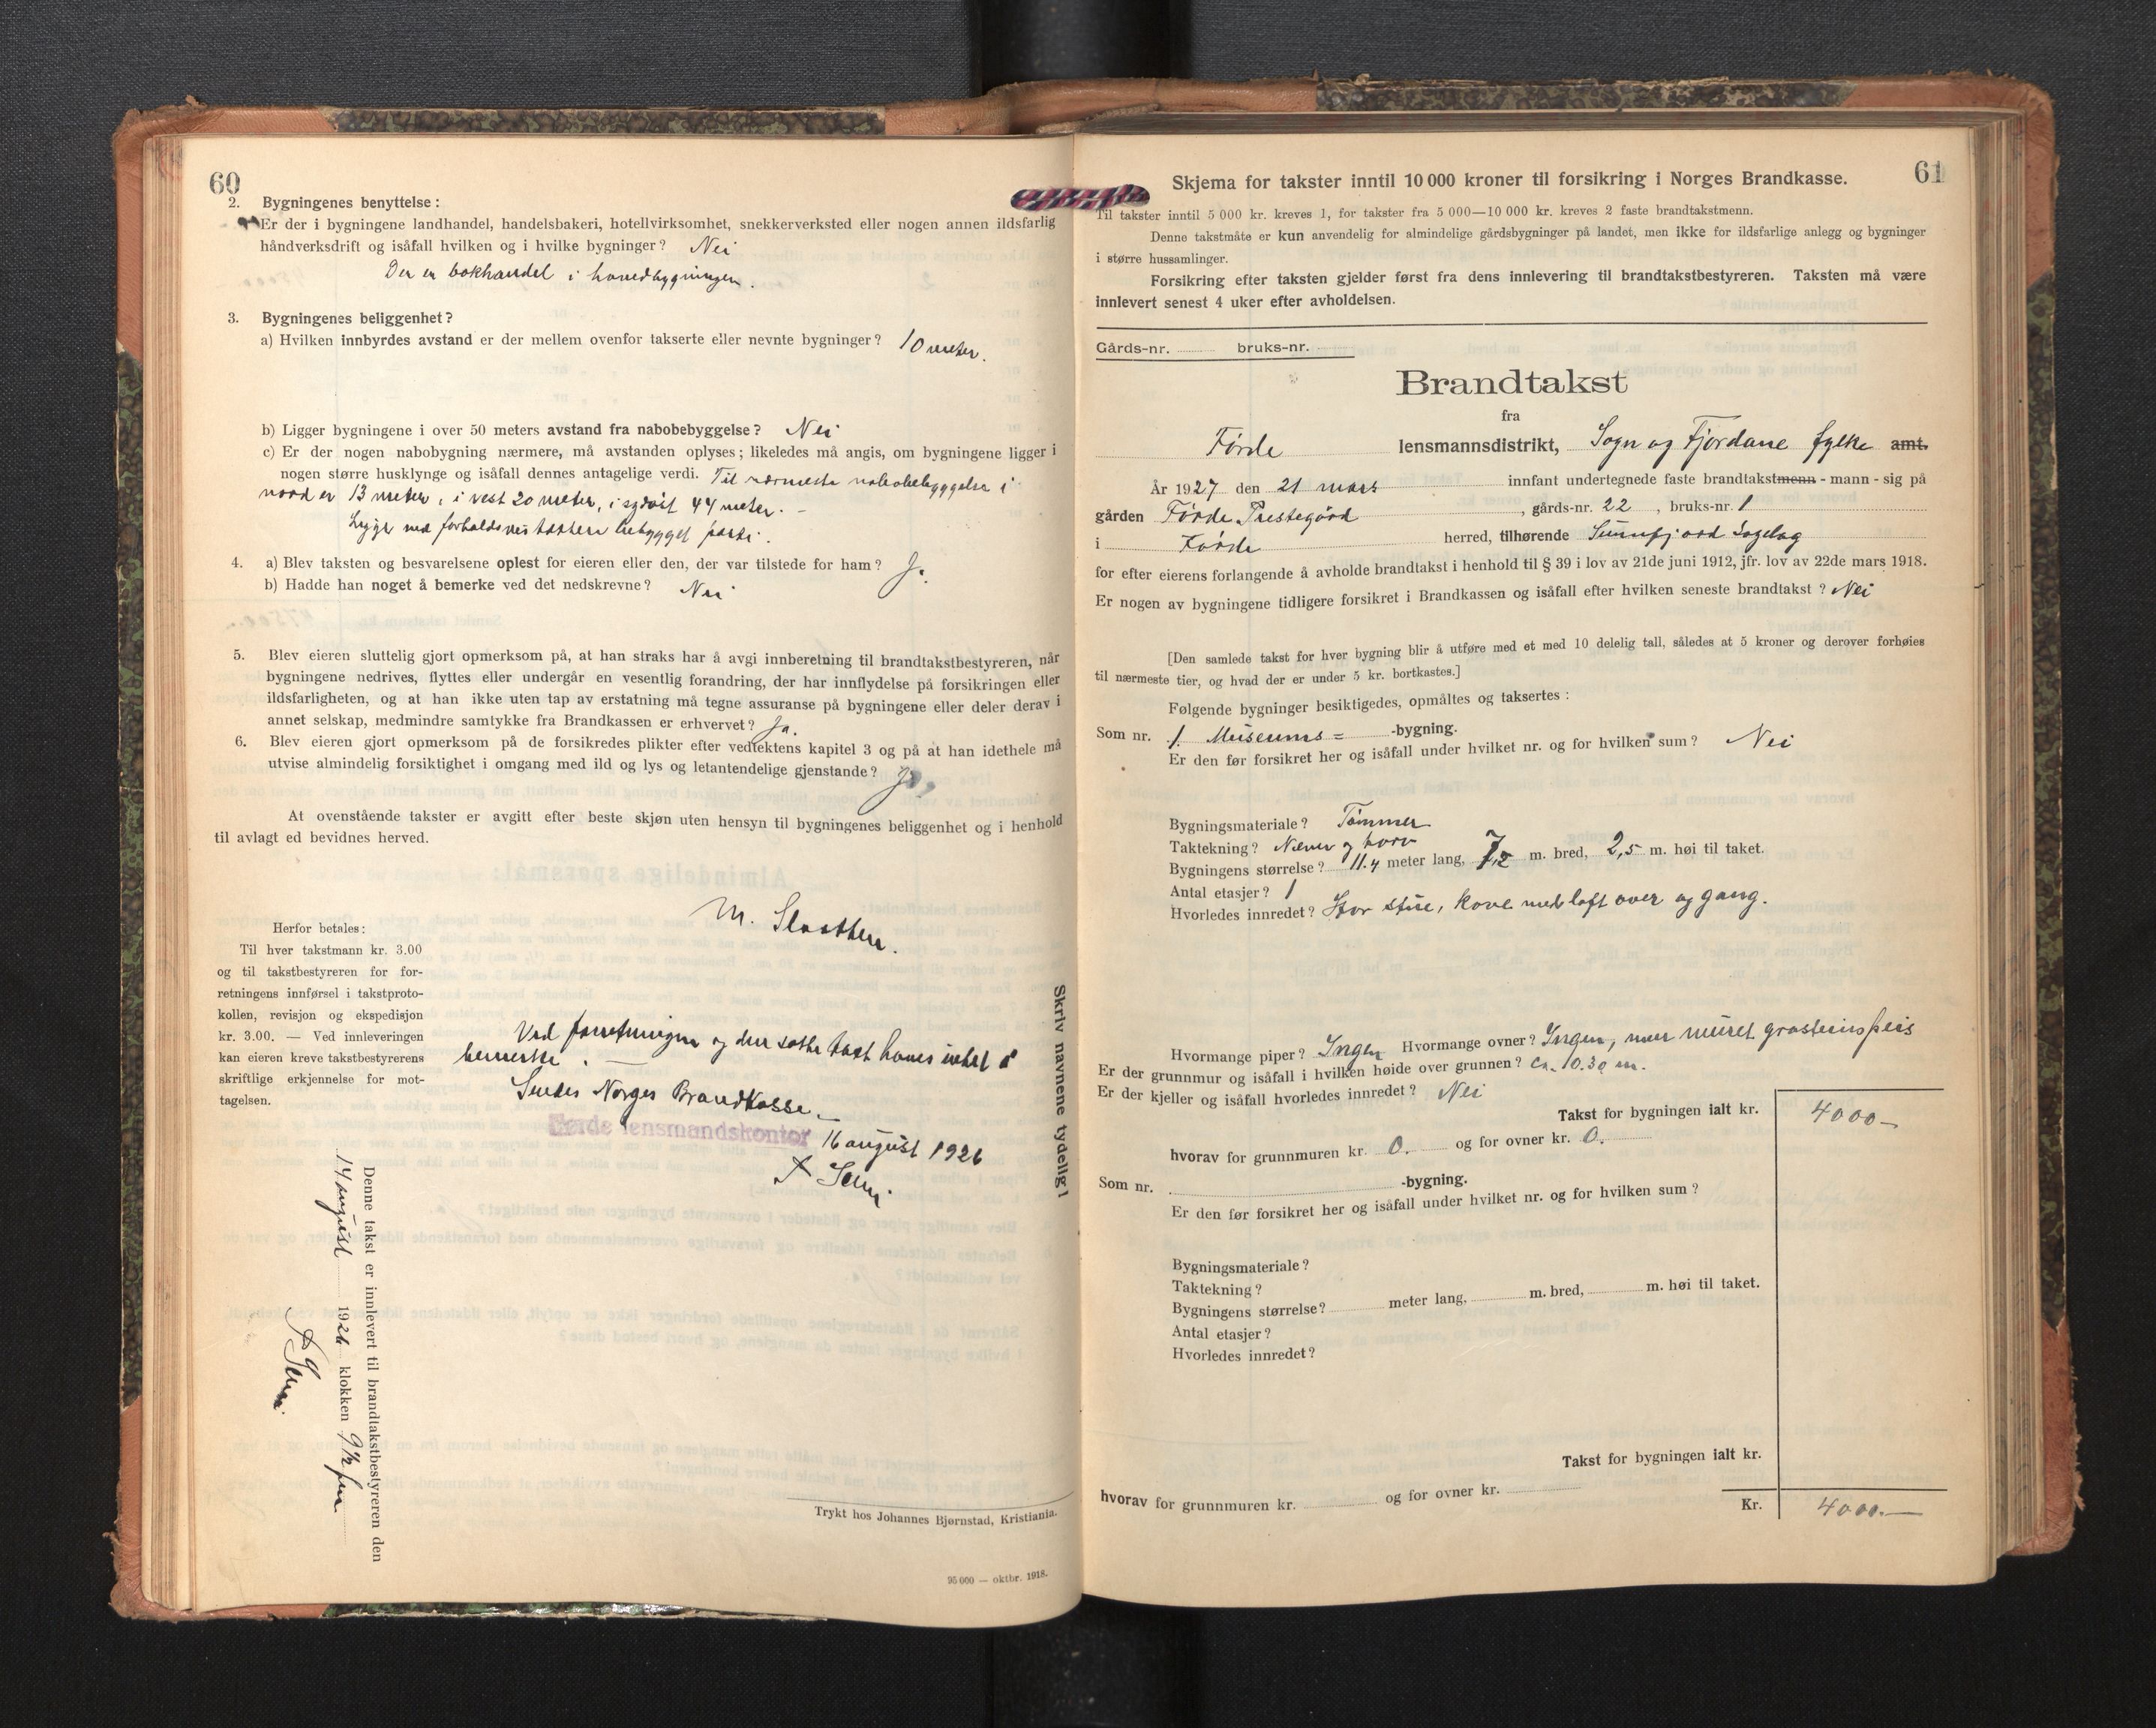 60
2. Bygningenes benyttelse:
Er der i bygningene landhandel, handelsbakeri, hotellvirksomhet, snekkerverksted eller nogen annen ildsfarlig
håndverksdrift og isåfall hvilken og i hvilke bygninger? Nei
Der er bokhandel i hovedbygningen.
3. Bygningenes beliggenhet?
a) Hvilken innbyrdes avstand er der mellem ovenfor takserte eller nevnte bygninger? 10 meter.
b) Ligger bygningene i over 50 meters avstand fra nabobebyggelse? Nei
c) Er der nogen nabobygning nærmere, må avstanden oplyses; likeledes må angis, om bygningene ligger i
nogen større husklynge og isåfall dennes antagelige verdi. Til nærmeste nabobebyggelse i
nord er 13 meter, i vest 20 meter, i sydvest 44 meter. -
Ligger ved forholdsvis tættere bebygget parti.
4. a) Blev taksten og besvarelsene oplest for eieren eller den, der var tilstede for ham? Ja.
b) Hadde han noget å bemerke ved det nedskrevne? Nei
5. Blev eieren sluttelig gjort opmerksom på, at han straks har å avgi innberetning til brandtakstbestyreren, når
bygningene nedrives, flyttes eller undergår en vesentlig forandring, der har innflydelse på forsikringen eller
ildsfarligheten, og at han ikke uten tap av erstatning må tegne assuranse på bygningene eller deler derav i
annet selskap, medmindre samtykke fra Brandkassen er erhvervet? Ja.
6. Blev eieren gjort opmerksom på de forsikredes plikter efter vedtektens kapitel 3 og på at han idethele må
utvise almindelig forsiktighet i omgang med ild og lys og letantendelige gjenstande? Ja,
At ovenstående takster er avgitt efter beste skjøn uten hensyn til bygningenes beliggenhet og i henhold
til avlagt ed bevidnes herved.
M. Slaatten.
Herfor betales:
Til hver takstmann kr. 3.00
og til takstbestyreren for for-
retningens innførsel i takstproto-
kollen, revisjon og ekspedisjon
kr. 3.00. — Ved innleveringen
kan eieren kreve takstbestyrerens
skriftlige erkjennelse for mot-
tagelsen.
Ved forretningen og den satte takst haves intet å
bemerke. —
Sendes Norges Brandkasse. —
Førde lensmandskontor 16 august 1926
Skriv navnene tydelig!
Denne takst er innlevert til brandtakstbestyreren den
14 august 1926 klokken 9 1/2 fm
Trykt hos Johannes Bjørnstad, Kristiania.
95 000 — oktbr. 1918.
61
Skjema for takster inntil 10 000 kroner til forsikring i Norges Brandkasse.
Til takster inntil 5 000 kr. kreves 1, for takster fra 5 000—10 000 kr. kreves 2 faste brandtakstmenn.
Denne takstmåte er kun anvendelig for almindelige gårdsbygninger på landet, men ikke for ildsfarlige anlegg og bygninger
i større hussamlinger.
Forsikring efter taksten gjelder først fra dens innlevering til brandtakstbestyreren. Taksten må være
innlevert senest 4 uker efter avholdelsen.
Gårds-nr. bruks-nr.
Brandtakst
fra
Førde lensmannsdistrikt, Sogn og Fjordane fylke amt.
År 1927 den 21 mars innfant undertegnede faste brandtakstmenn - mann - sig på
gården Førde Prestegård, gårds-nr. 22, bruks-nr. 1
i Førde herred, tilhørende Sunnfjord Sogelag
for efter eierens forlangende å avholde brandtakst i henhold til § 39 i lov av 21de juni 1912, jfr. lov av 22de mars 1918.
Er nogen av bygningene tidligere forsikret i Brandkassen og isåfall efter hvilken seneste brandtakst? Nei
[Den samlede takst for hver bygning blir å utføre med et med 10 delelig tall, således at 5 kroner og derover forhøies
til nærmeste tier, og hvad der er under 5 kr. bortkastes.]
Følgende bygninger besiktigedes, opmåltes og taksertes:
Som nr. 1. Museums= -bygning.
Er den før forsikret her og isåfall under hvilket nr. og for hvilken sum? Nei
Bygningsmateriale? Tømmer
Taktekning? Næver og torv
Bygningens størrelse? 11.4 meter lang, 7,2 m. bred, 2,5 m. høi til taket.
Antal etasjer? 1
Hvorledes innredet? Stor stue, kove med loft over og gang.
Hvormange piper? Ingen Hvormange ovner? Ingen, men muret gråsteinspeis
Er der grunnmur og isåfall i hvilken høide over grunnen? Ca. 10.30 m.
Er der kjeller og isåfall hvorledes innredet? Nei
Takst for bygningen ialt kr. 4000-
hvorav for grunnmuren kr. 0. og for ovner kr. 0.
Som nr. -bygning.
Er den før forsikret her og isåfall under hvilket nr. og for hvilken sum?
Bygningsmateriale?
Taktekning?
Bygningens størrelse? meter lang, m. bred, m. høi til taket.
Antal etasjer?
Hvorledes innredet?
Takst for bygningen ialt kr.
hvorav for grunnmuren kr. og for ovner kr.
Kr. 4000.—